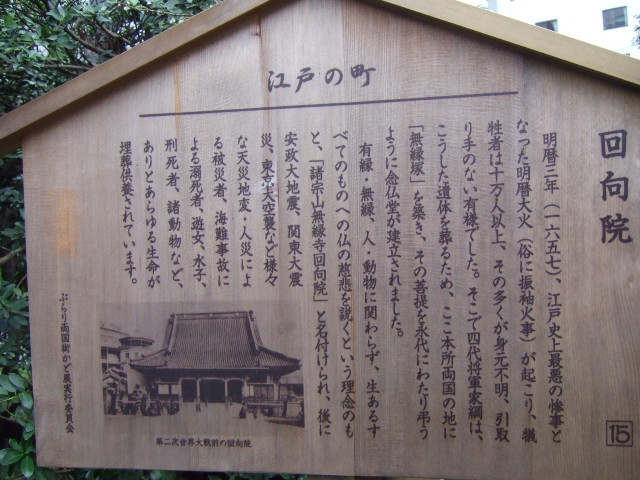 江戸の町
回向院
明暦三年(一六五七)、江戸史上最悪の惨事と
なった明暦大火(俗に振袖火事)が起こり、犠
牲者は十万人以上、その多くが身元不明、引取
り手のない有様でした。そこで四代将軍家綱は、
こうした遺体を葬るため、ここ本所両国の地に
「無縁塚」を築き、その菩提を永代にわたり弔う
ように念仏堂が建立されました。
有縁・無縁、人・動物に関わらず、生あるす
べてのものへの仏の慈悲を説くという理念のも
と、「諸宗山無縁寺回向院」と名付けられ、後に
安政大地震、関東大震
災、東京大空襲など様々
な天災地変・人災によ
る被災者、海難事故に
よる溺死者、遊女、水子、
刑死者、諸動物など、
ありとあらゆる生命が
埋葬供養されています。
第二次世界大戦前の回向院
ぶらり両国街かど展実行委員会
15